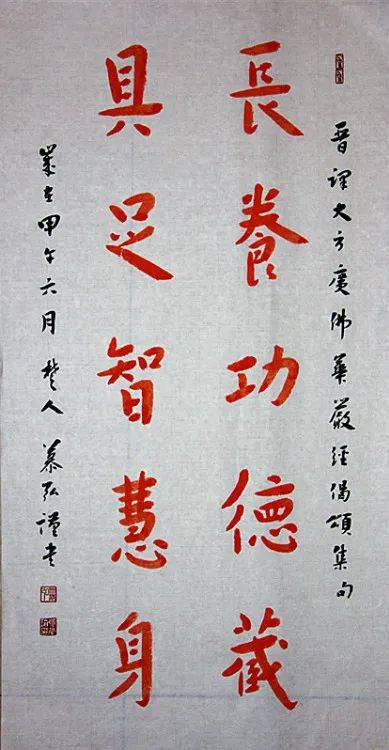 晉譯大方廣佛華嚴經偈頌集句
長養功德藏
具足智慧身
歲在甲午六月楚人慕弘謹書